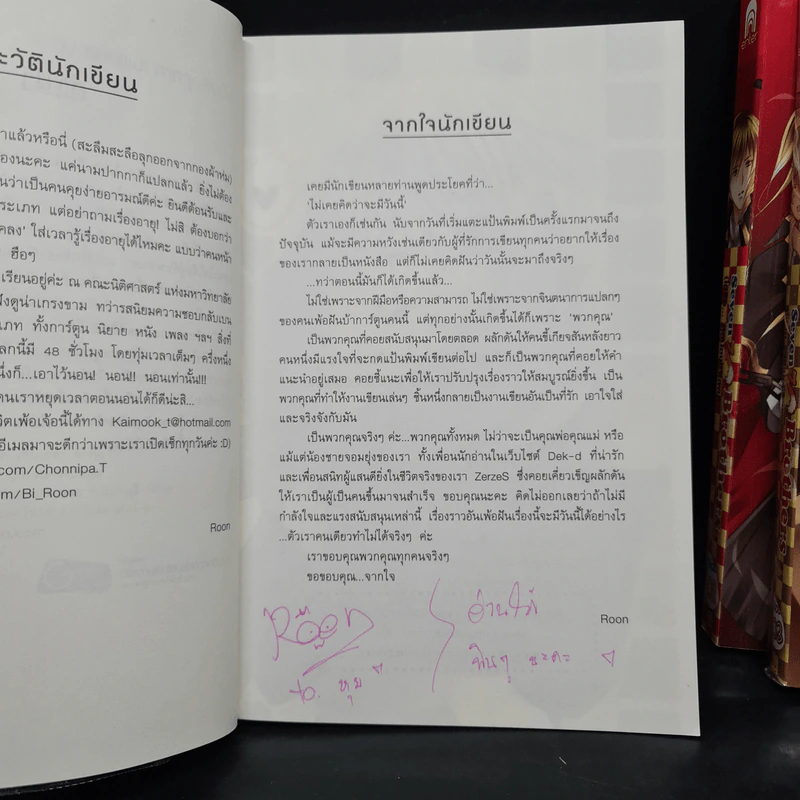 ะวัตินักเขียน
าแล้วหรือนี่ (สะลึมสะลือลุกออกจากกองผ้าห่ม)
องนะคะ แค่นามปากกาก็แปลกแล้ว ยิ่งไม่ต้อง
นว่าเป็นคนคุยง่ายอารมณ์ดีค่ะ ยินดีต้อนรับและ
ระเภท แต่อย่าถามเรื่องอายุ! ไม่สิ ต้องบอกว่า
คลง' ใส่เวลารู้เรื่องอายุได้ไหมคะ แบบว่าคนหน้า
ฮือๆ
เรียนอยู่ค่ะ ณ คณะนิติศาสตร์ แห่งมหาวิทยาลัย
ังดูน่าเกรงขาม ทว่ารสนิยมความชอบกลับเบน
ภท ทั้งการ์ตูน นิยาย หนัง เพลง ฯลฯ สิ่งที่
ลกนี้มี 48 ชั่วโมง โดยทุ่มเวลาเต็มๆ ครึ่งหนึ่ง
นึ่งก็...เอาไว้นอน! นอน!! นอนเท่านั้น!!!
คนเราหยุดเวลาตอนนอนได้ก็ดีน่ะสิ...
ชีวิตเพ้อเจ้อนี้ได้ทาง Kaimook_t@hotmail.com
อีเมลมาจะดีกว่าเพราะเราเปิดเช็กทุกวันค่ะ :D)
.com/Chonnipa.T
om/Bi_Roon
Roon
จากใจนักเขียน
เคยมีนักเขียนหลายท่านพูดประโยคที่ว่า...
'ไม่เคยคิดว่าจะมีวันนี้'
ตัวเราเองก็เช่นกัน นับจากวันที่เริ่มแตะแป้นพิมพ์เป็นครั้งแรกมาจนถึง
ปัจจุบัน แม้จะมีความหวังเช่นเดียวกับผู้ที่รักการเขียนทุกคนว่าอยากให้เรื่อง
ของเรากลายเป็นหนังสือ แต่ก็ไม่เคยคิดฝันว่าวันนั้นจะมาถึงจริงๆ
...ทว่าตอนนี้มันก็ได้เกิดขึ้นแล้ว...
ไม่ใช่เพราะจากฝีมือหรือความสามารถ ไม่ใช่เพราะจากจินตนาการแปลกๆ
ของคนเพ้อฝันบ้าการ์ตูนคนนี้ แต่ทุกอย่างนั้นเกิดขึ้นได้ก็เพราะ 'พวกคุณ'
เป็นพวกคุณที่คอยสนับสนุนมาโดยตลอด ผลักดันให้คนขี้เกียจสันหลังยาว
คนหนึ่งมีแรงใจที่จะกดแป้นพิมพ์เขียนต่อไป และก็เป็นพวกคุณที่คอยให้คำ
แนะนำอยู่เสมอ คอยชี้แนะเพื่อให้เราปรับปรุงเรื่องราวให้สมบูรณ์ยิ่งขึ้น เป็น
พวกคุณที่ทำให้งานเขียนเล่นๆ ชิ้นหนึ่งกลายเป็นงานเขียนอันเป็นที่รัก เอาใจใส่
และจริงจังกับมัน
เป็นพวกคุณจริงๆ ค่ะ...พวกคุณทั้งหมด ไม่ว่าจะเป็นคุณพ่อคุณแม่ หรือ
แม้แต่น้องชายจอมยุ่งของเรา ทั้งเพื่อนนักอ่านในเว็บไซต์ Dek-d ที่น่ารัก
และเพื่อนสนิทผู้แสนดียิ่งในชีวิตจริงของเรา ZerzeS ซึ่งคอยเคี่ยวเข็ญผลักดัน
ให้เราเป็นผู้เป็นคนขึ้นมาจนสำเร็จ ขอบคุณนะคะ คิดไม่ออกเลยว่าถ้าไม่มี
กำลังใจและแรงสนับสนุนเหล่านี้ เรื่องราวอันเพ้อฝันเรื่องนี้จะมีวันนี้ได้อย่างไร
...ตัวเราคนเดียวทำไม่ได้จริงๆ ค่ะ
เราขอบคุณพวกคุณทุกคนจริงๆ
ขอขอบคุณ...จากใจ
Roon
Roon
อ่านให้
to. หุม
นะคะ